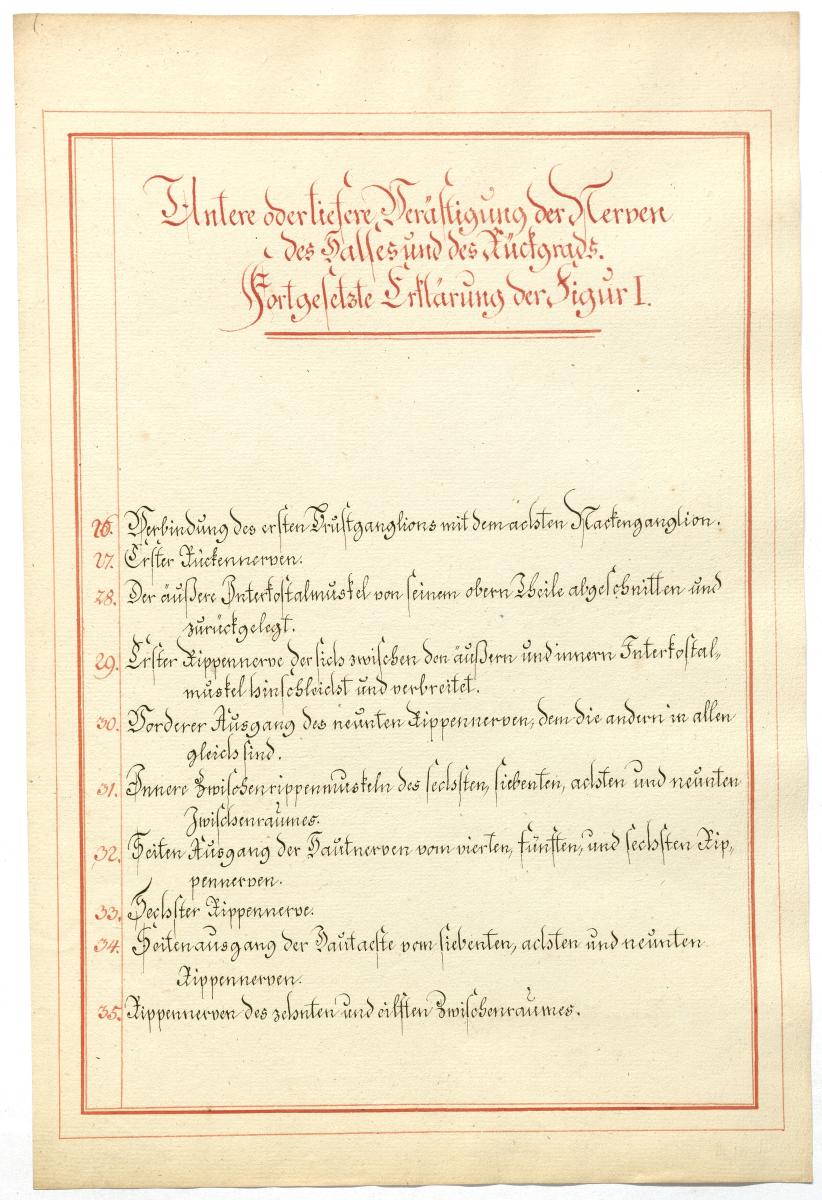 Untere oder tiefere Verästigung der Nerven
des Halses und des Rückgrads.
Fortgesetzte Erklärung der Figur I.
26. Verbindung des ersten Brustganglions mit dem achten Nackenganglion.
27. Erster Rückennerven.
28. Der äußere Interkostalmuskel von seinem obern Theile abgeschnitten und
zurückgelegt.
29. Erster Rippennerve der sich zwischen den äußern und innern Interkostal-
muskel hinschleicht und verbreitet.
30. Vorderer Ausgang des neunten Rippennerven, dem die andern in allen
gleich sind.
31. Innere Zwischenrippenmuskeln des sechsten, siebenten, achten und neunten
Zwischenraumes.
32. Seiten Ausgang der Hautnerven vom vierten, fünften, und sechsten Rip-
pennerven.
33. Sechster Rippennerve.
34. Seitenausgang der Hautaeste vom siebenten, achten und neunten
Rippennerven.
35. Rippennerven des zehnten und eilften Zwischenraumes.